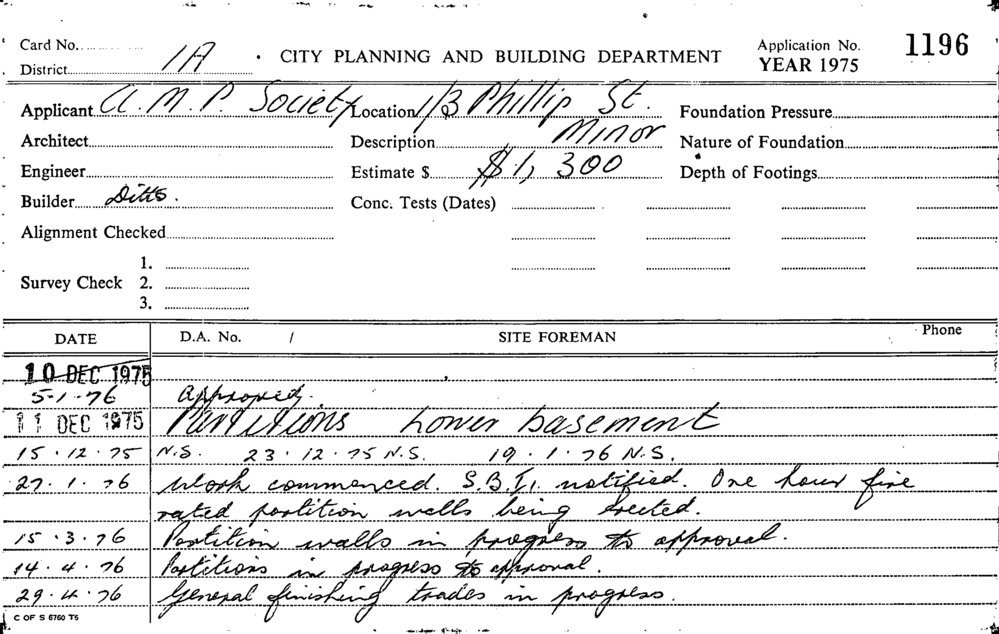 Card No.
District 1A
CITY PLANNING AND BUILDING DEPARTMENT
Application No. 1196
YEAR 1975
Applicant A.M.P. Society Location 1/3 Phillip St. Foundation Pressure
Architect Description Minor Nature of Foundation
Engineer Estimate $ $1,300 Depth of Footings
Builder Ditto. Conc. Tests (Dates)
Alignment Checked
1.
Survey Check 2.
3.
DATE D.A. No. / SITE FOREMAN Phone
10 DEC 1975
5-1-76 Approved.
11 DEC 1975 Partitions Lower basement
15.12.75 N.S. 23.12.75 N.S. 19.1.76 N.S.
27.1.76 Work commenced. S.B.I. notified. One hour fire
rated partition walls being erected.
15.3.76 Partition walls in progress to approval.
14.4.76 Partitions in progress to approval.
29.4.76 General finishing trades in progress.
C OF S 6760 T6